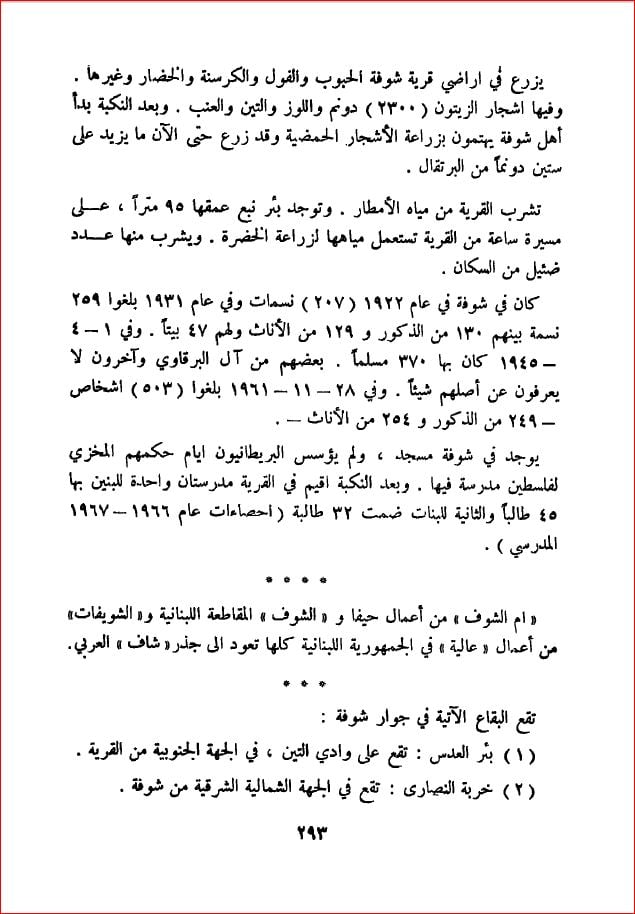 يزرع في اراضي قرية شوفة الحبوب والفول والكرسنة والخضار وغيرها .
وفيها اشجار الزيتون ( ٢٣٠٠ ) دونم واللوز والتين والعنب . وبعد النكبة بدأ
أهل شوفة يهتمون بزراعة الأشجار الحمضية وقد زرع حتّى الآن ما يزيد على
ستين دونماً من البرتقال .
تشرب القرية من مياه الأمطار . وتوجد بئر نبع عمقها ٩٥ متراً ، عـلـى
مسيرة ساعة من القرية تستعمل مياهها لزراعة الخضرة . ويشرب منها عـــدد
ضئيل من السكان .
كان في شوفة في عام ١٩٢٢ ( ٢٠٧ ) نسمات وفي عام ١٩٣١ بلغوا ٢٥٩
نسمة بينهم ١٣٠ من الذكور و ١٢٩ من الأناث ولهم ٤٧ بيتاً . وفي ١ – ٤
– ١٩٤٥ كان بها ٣٧٠ مسلماً . بعضهم من آل البرقاوي وآخرون لا
يعرفون عن أصلهم شيئاً . وفي ٢٨ – ١١ – ١٩٦١ بلغوا ( ٥٠٣ ) اشخاص
– ٢٤٩ من الذكور و ٢٥٤ من الأناث – .
يوجد في شوفة مسجد ، ولم يؤسس البريطانيون ايام حكمهم المخزي
لفلسطين مدرسة فيها . وبعد النكبة اقيم في القرية مدرستان واحدة للبنين بها
٤٥ طالباً والثانية للبنات ضمت ٣٢ طالبة ( احصاءات عام ١٩٦٦ – ١٩٦٧
المدرسي ) .
* * * *
« ام الشوف » من أعمال حيفا و « الشوف » المقاطعة اللبنانية و« الشويفات»
من أعمال « عالية » في الجمهورية اللبنانية كلها تعود الى جذر« شاف » العربي.
* * *
تقع البقاع الآتية في جوار شوفة :
( ١ ) بئر العدس : تقع على وادي التين ، في الجهة الجنوبية من القرية .
( ٢ ) خربة النصارى : تقع في الجهة الشمالية الشرقية من شوفة .
٢٩٣